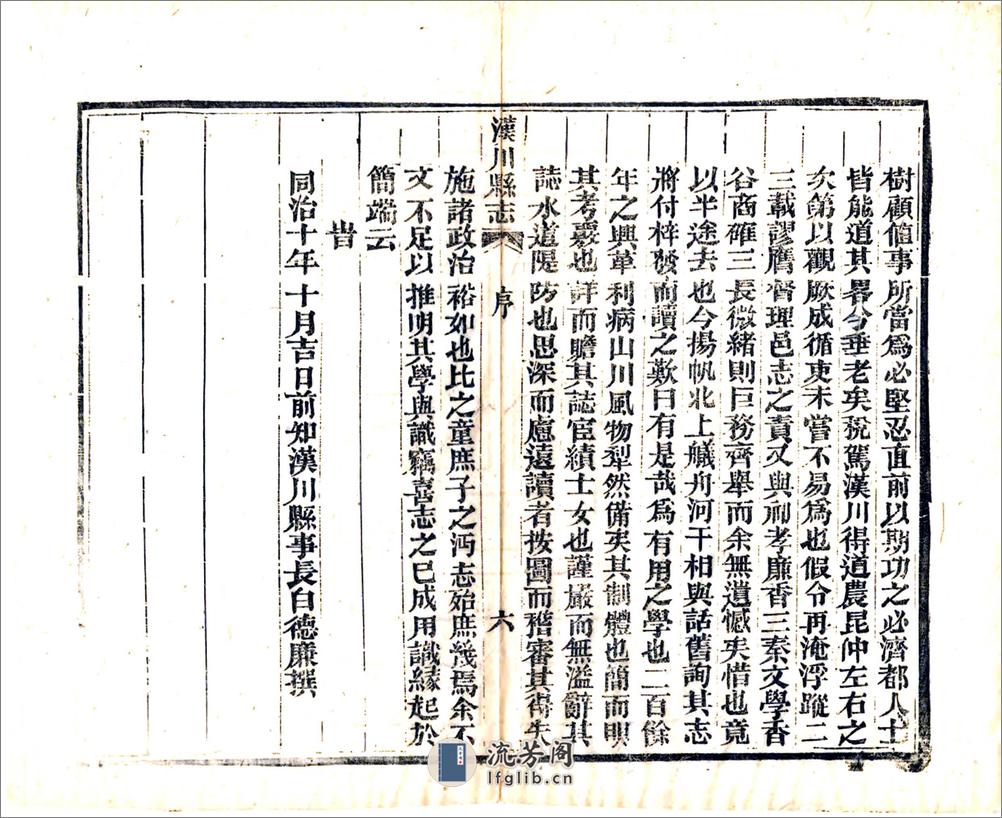 樹顧值事所當爲必堅忍直前以期功之必濟都人士
皆能道其畧今垂老矣稅駕漢川得道農昆仲左右之
次第以觀厥成循吏未嘗不易爲也假令再淹浮蹤二
三載謬膺督理邑志之責又與利孝廉香三秦文學香
谷商確三長微緒則巨務齊舉而余無遺憾矣惜也竟
以半途去也今揚帆北上艤舟河干相與話舊詢其志
將付梓發而讀之歎曰有是哉爲有用之學也二百餘
年之興革利病山川風物犁然備矣其制體也簡而明
其考覈也詳而贍其誌宦績士女也謹嚴而無溢辭其
誌水道隄防也思深而慮遠讀者按圖而稽審其得失
漢川縣志
序
六
施諸政治裕如也比之童庶子之沔志始庶幾焉余不
文不足以推明其學與識竊喜志之已成用識緣起於
簡端云
旹
同治十年十月吉日前知漢川縣事長白德廉撰
流芳阁
lfglib.cn